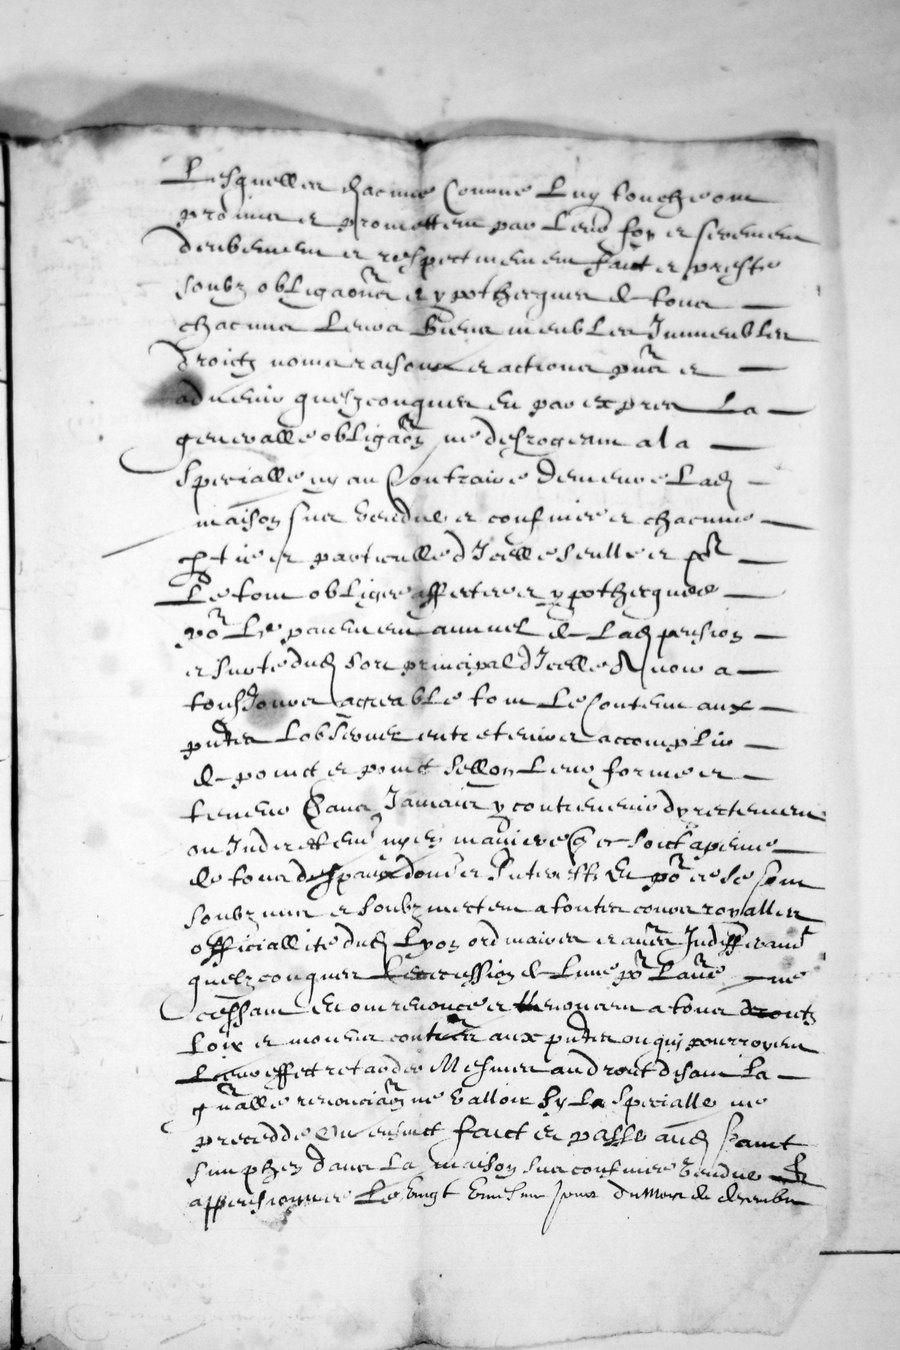 Lesquelles chacune comme luy touche ont
promis et promettent par leur foy et serement
et respectivement faict et preste
soubz obligaon et ypothecque de tous
chacuns leurs biens meubles Immeubles
droictz noms raisons et actions pnts et
advenir quelzconques en par expres la
generalle obligaon ne desrogeant a la
specialle ny au contraire demeure lad
maison sus vendue et confinee et chacune
ptie et particulle d'Icelle seulle et pr
le tout obligee affectee et ypothecquee
por le payement annuel de lad pension
et sorte dud sort principal d'Icelle avoir a
tousJours agreable tout le contenu aux
pntes l'observer entretenir et accomplir
de poinct en poinct sellon leur forme et
teneur sans Jamais y contrevenir dyrectement
ou Indirettemt ny en maniere soict a peine
de tous despans et Interestz Et por ce se sont
soubzmis et soubzmectent a toutes cours royalles
officiallité dud Lyon ordinaires et aues Indifferant
quelzconques de l'une pr l'aure ne
cessant Et ont renonce et renoncent a tous droictz
loix et moiens contres aux pntes ou qui pourroyent
leur effect retarder Mesmes au droict disant la
gnalle renonciaon ne valloir sy la specialle ne
precedde Ainsi faict et passe aud sainct
simphen dans la maison sus confinee vendue
appensionnee le vingt jour du mois de decembre